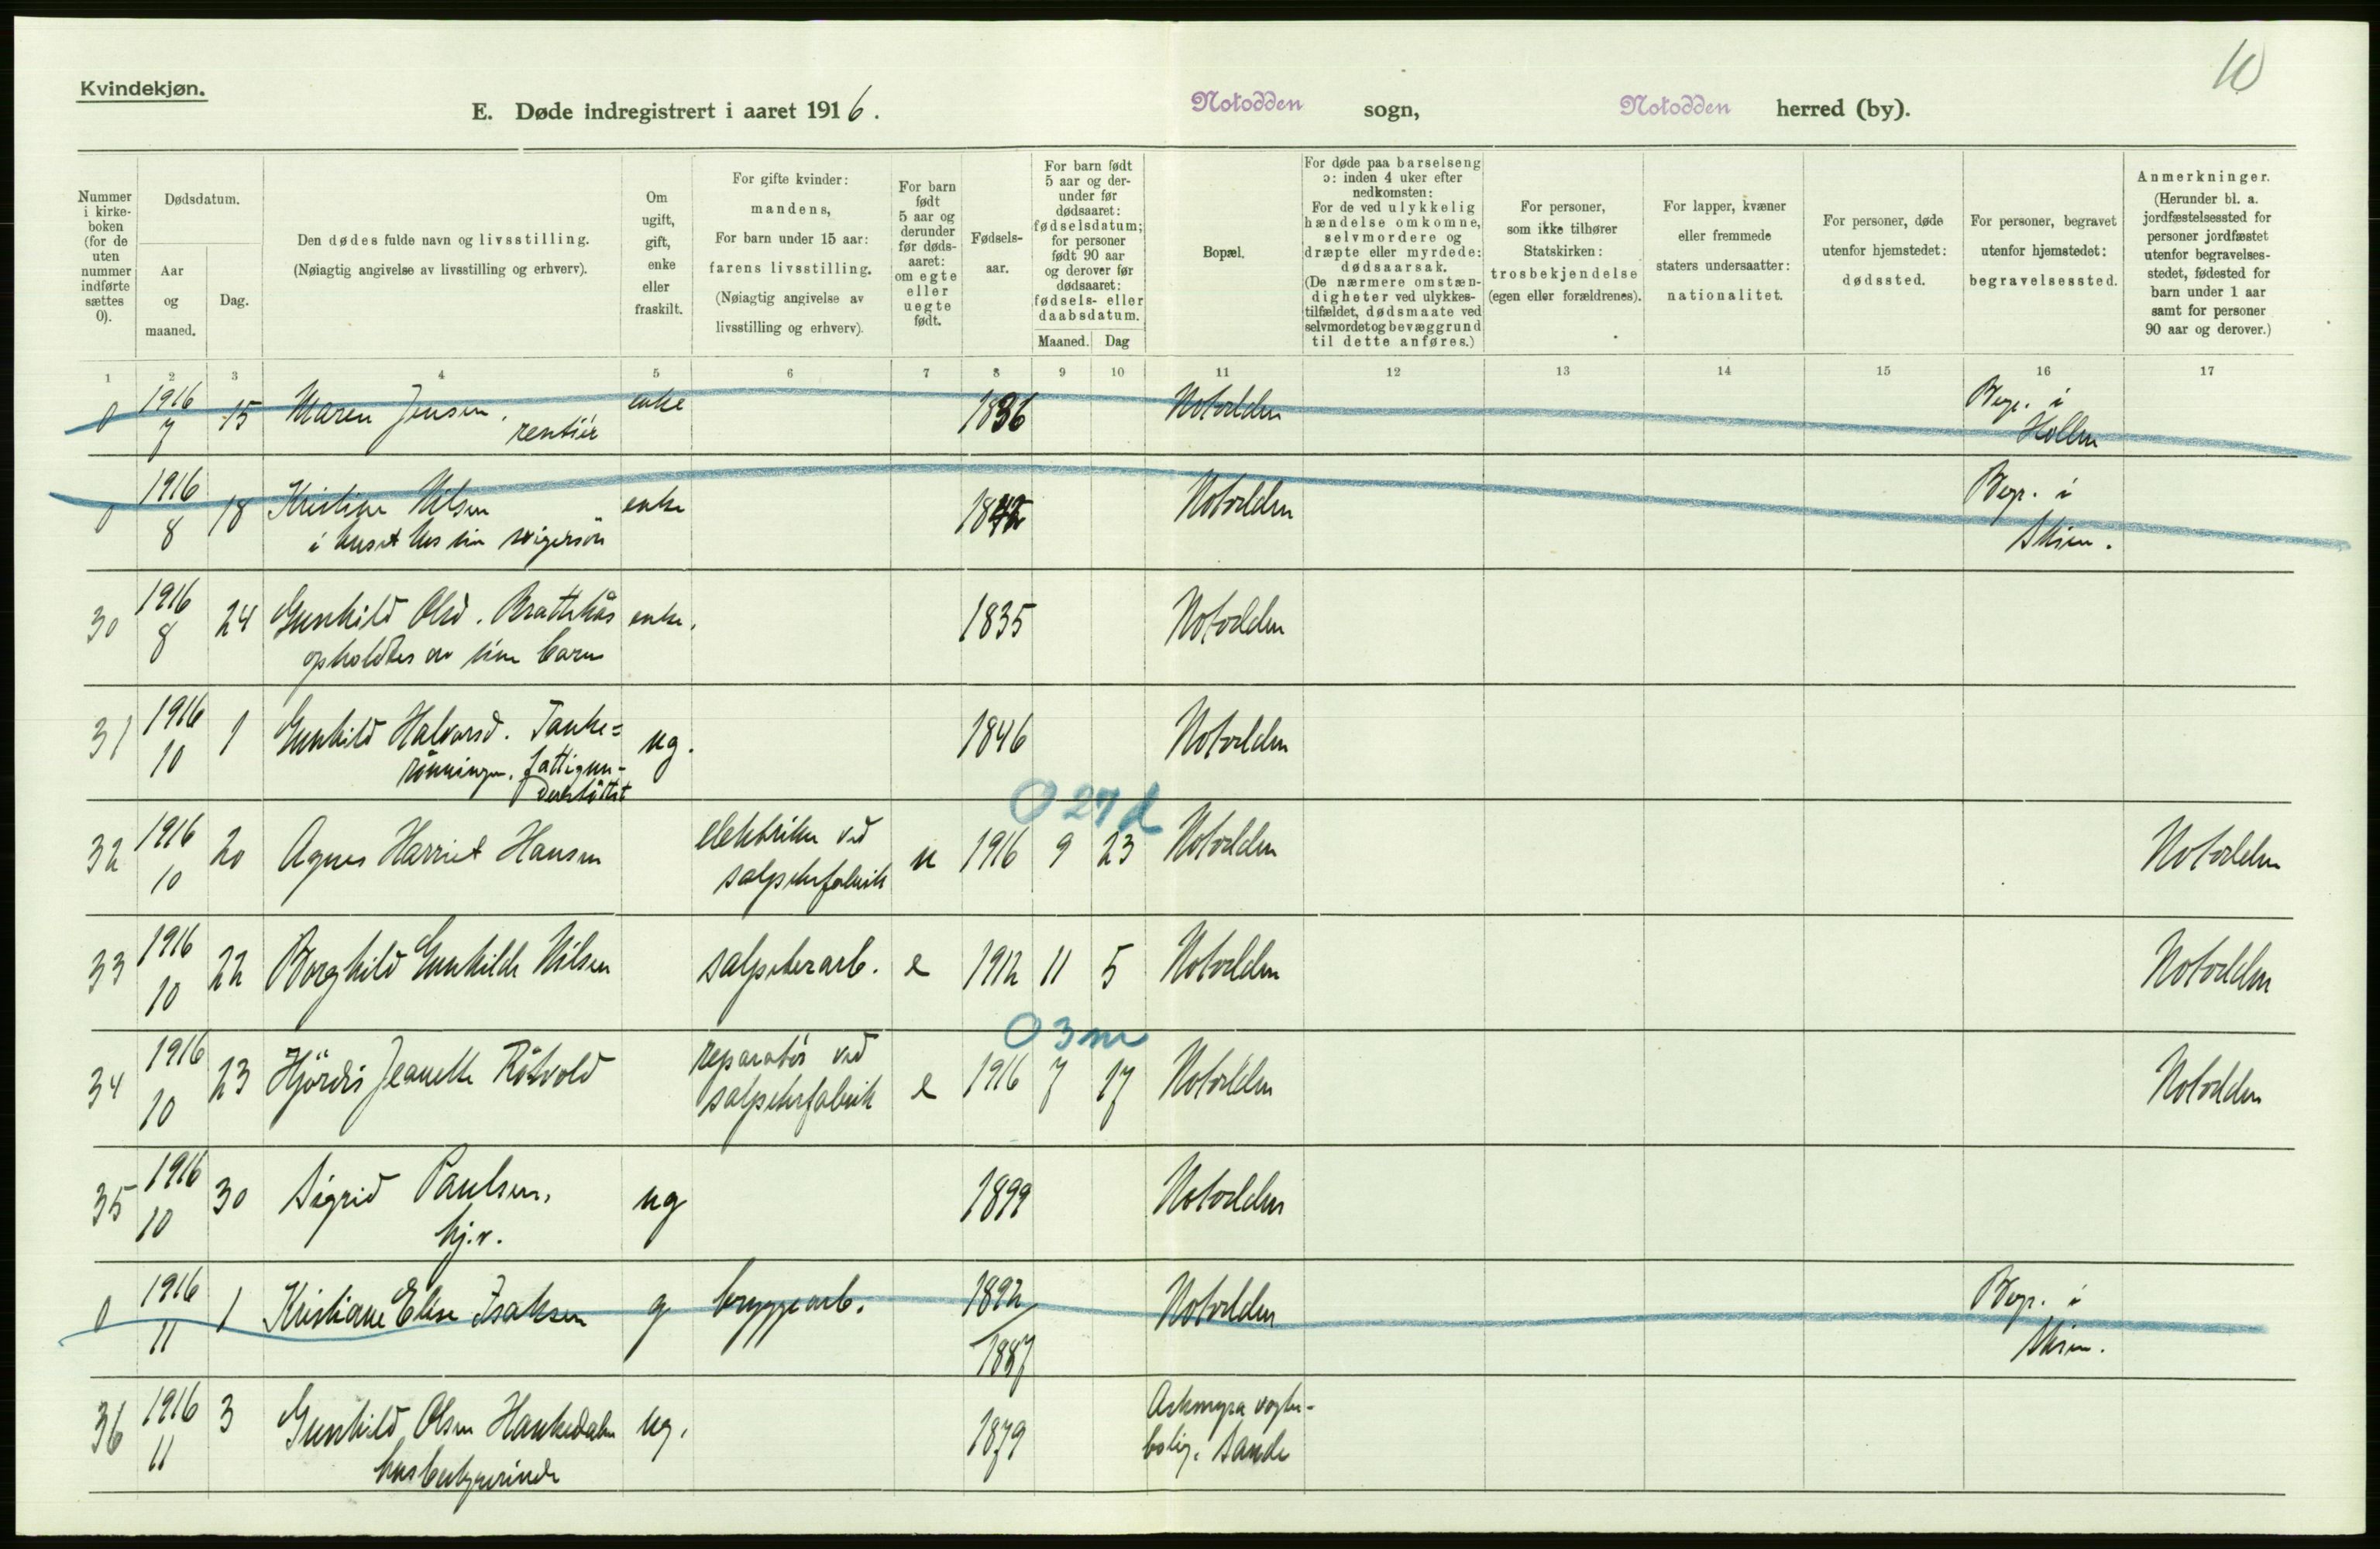 10
Kvindekjøn.
E. Døde indregistrert i aaret 1916.
Notodden sogn, Notodden herred (by).
Nummer i kirke- boken (for de uten nummer indførte sættes 0).
Dødsdatum.
Aar og maaned.
Dag.
Den dødes fulde navn og livsstilling.
(Nøiagtig angivelse av livsstilling og erhverv).
Om ugift, gift, enke eller fraskilt.
For gifte kvinder: mandens, For barn under 15 aar: farens livsstilling. (Nøiagtig angivelse av livsstilling og erhverv).
For barn født 5 aar og derunder før døds- aaret: om egte eller uegte født.
Fødsels- aar.
For barn født 5 aar og der- under før dødsaaret: fødselsdatum; for personer født 90 aar og derover før dødsaaret: fødsels- eller daabsdatum.
Maaned. Dag
Bopæl.
For døde paa barselseng ɔ: inden 4 uker efter nedkomsten: For de ved ulykkelig hændelse omkomne, selvmordere og dræpte eller myrdede: dødsaarsak. (De nærmere omstæn- digheter ved ulykkes- tilfældet, dødsmaate ved selvmordet og bevæggrund til dette anføres.)
For personer, som ikke tilhører Statskirken: trosbekjendelse (egen eller forældrenes).
For lapper, kvæner eller fremmede staters undersaatter: nationalitet.
For personer, døde utenfor hjemstedet: dødssted.
For personer, begravet utenfor hjemstedet: begravelsessted.
Anmerkninger. (Herunder bl. a. jordfæstelsessted for personer jordfæstet utenfor begravelses- stedet, fødested for barn under 1 aar samt for personer 90 aar og derover.)
1 2 3 4 5 6 7 8 9 10 11 12 13 14 15 16 17
0 1916 15 Maren Jensen, enke 1836 Notodden Begr. i
7 rentiér Hollen
0 1916 18 Kristine Nilsen enke 1842 Notodden Begr. i
8 i huset hos sin svigersön Skien.
30 1916 24 Gunhild Olsd. Brattekås enke. 1835 Notodden
8 opholdtes av sine barn
31 1916 1 Gunhild Halvorsd. Tanke= ug. 1846 Notodden
10 rönningen. fattigun-
derstöttet
0 27 d
32 1916 20 Agnes Harriet Hansen elektriker ved u 1916 9 23 Notodden Notodden
10 salpeterfabrik
33 1916 22 Borghild Gunhilde Nilsen salpeterarb. e 1912 11 5 Notodden Notodden
10
0 3 m
34 1916 23 Hjördis Jeanette Rötvold reparatör ved e 1916 7 17 Notodden Notodden
10 salpeterfabrik
35 1916 30 Sigrid Paulsen, ug 1899 Notodden
10 hj.v.
0 1916 1 Kristiane Elise Isaksen g bryggearb. 1892 Notodden Begr. i
11 1887 Skien.
36 1916 3 Gunhild Olsen Haukedalen ug. 1879 Askmyra vogter-
11 husbestyrerinde bolig. Sande